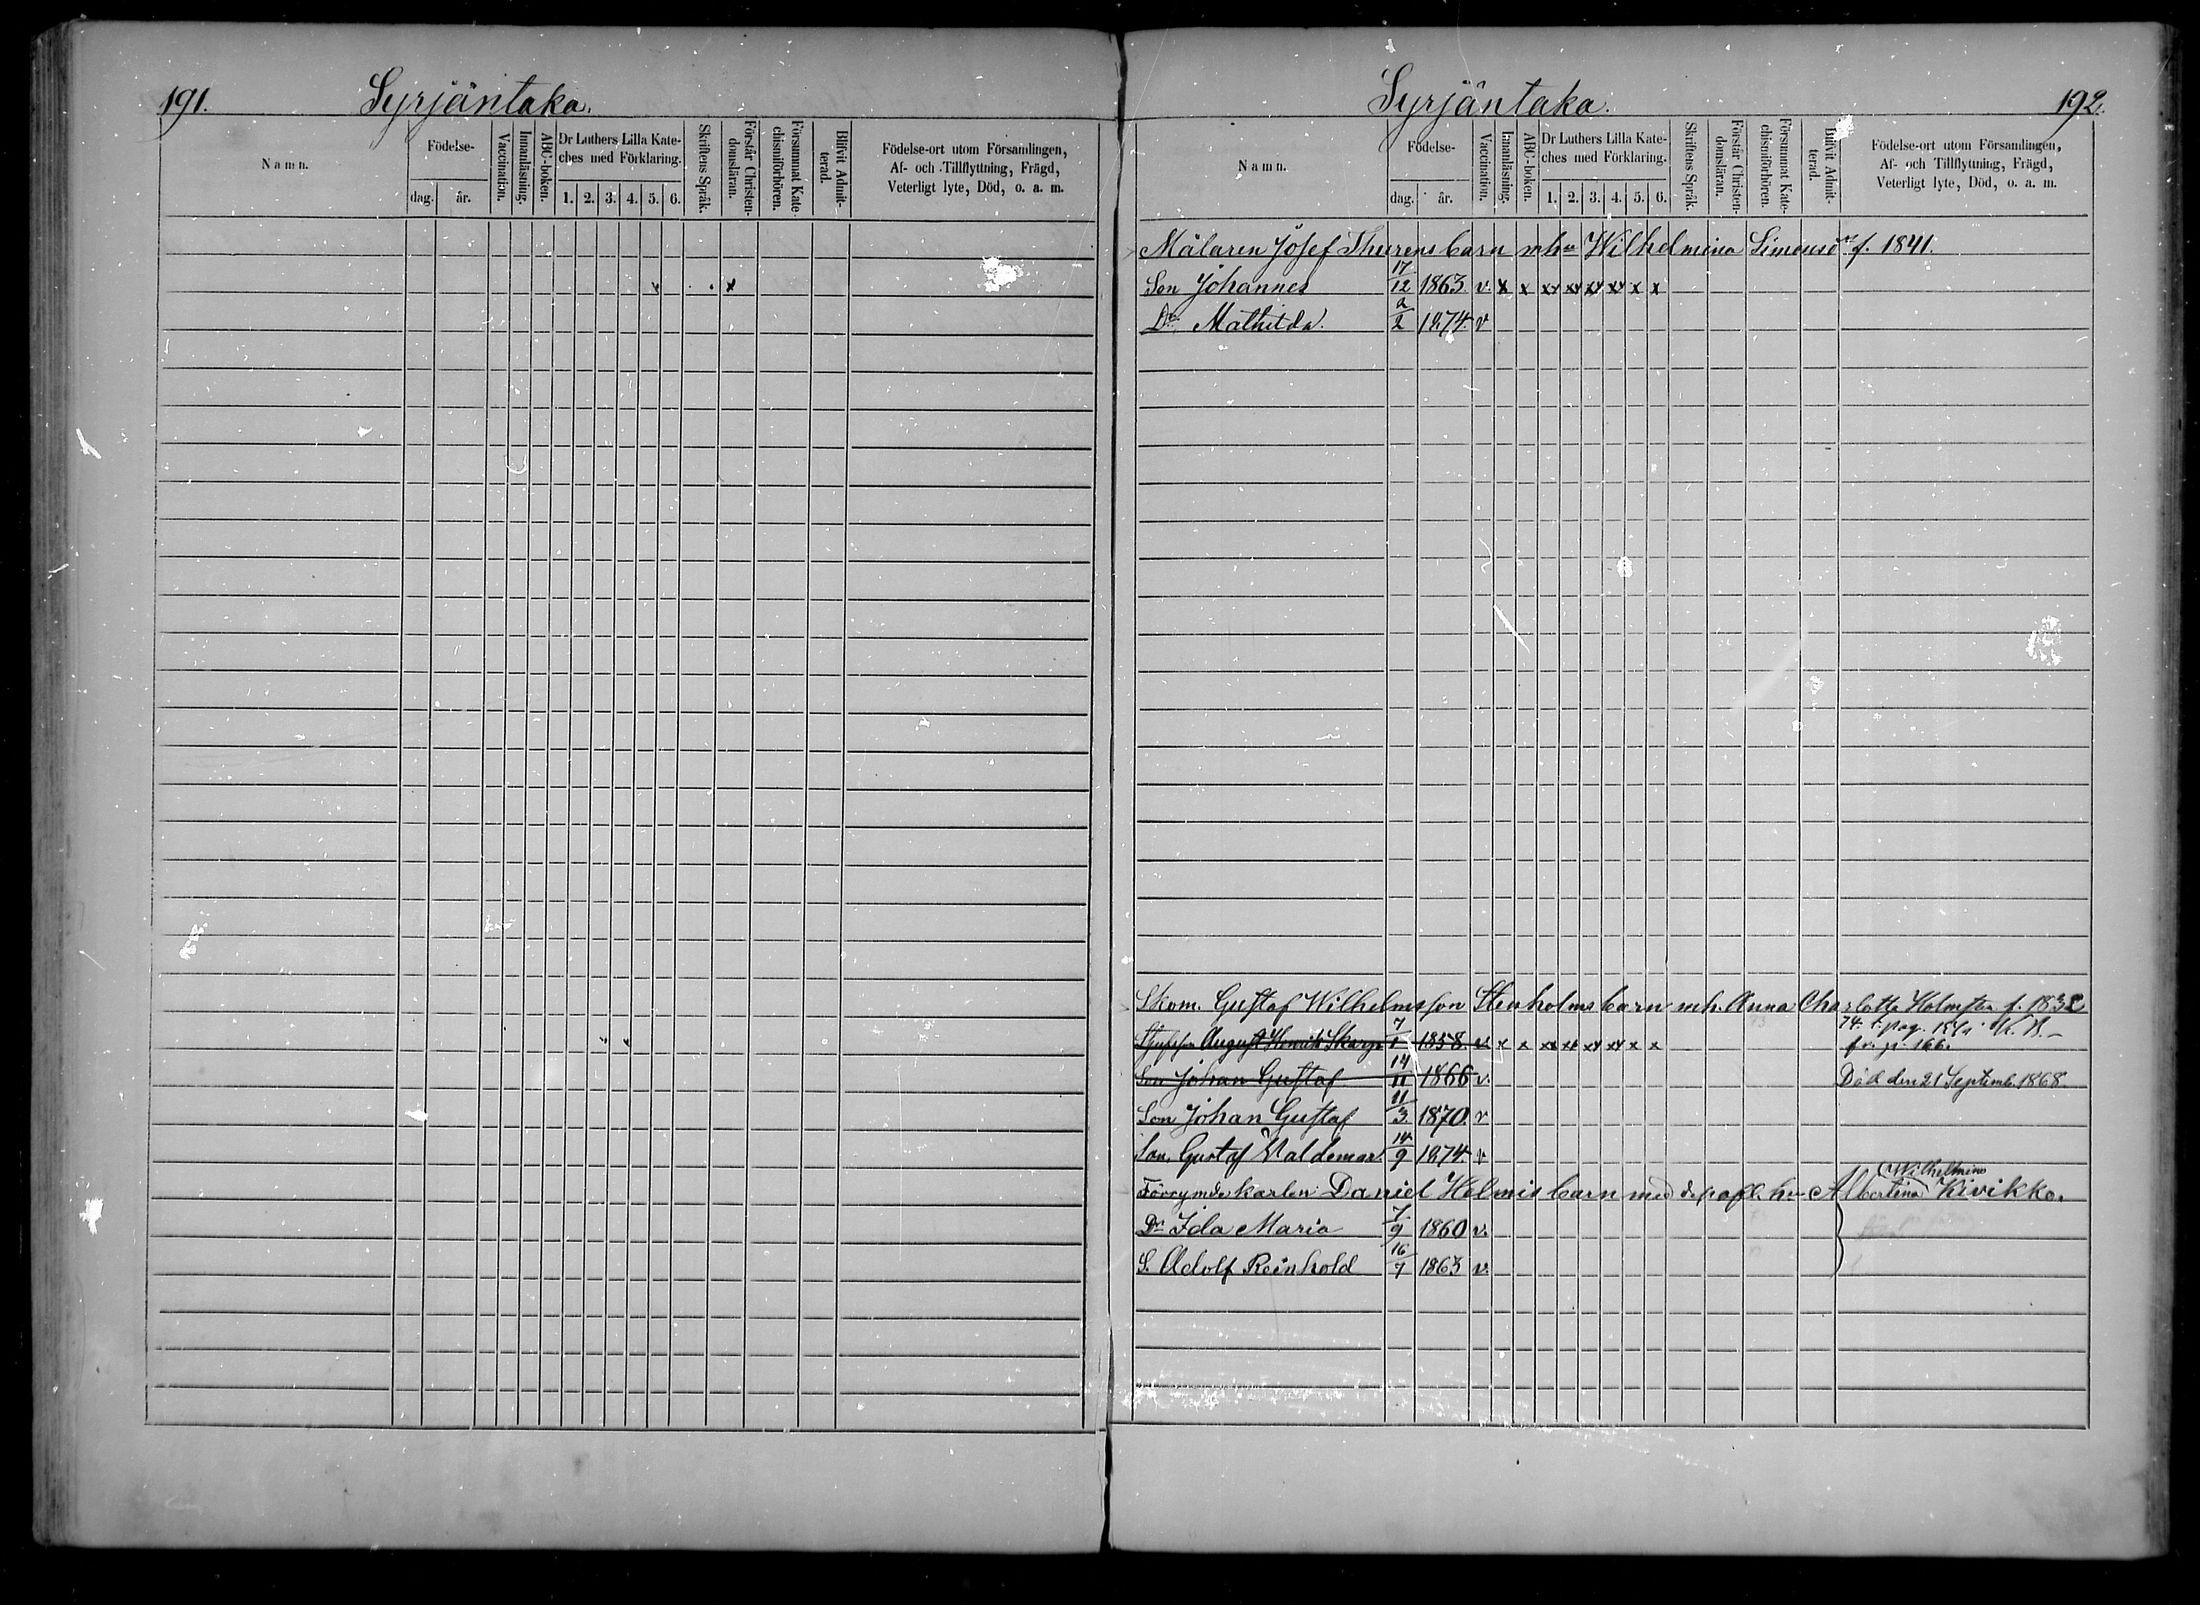 191. Syrjäntaka.
Namn.
Födelse-
dag. år.
Vaccination.
Innanläsning.
ABC-boken.
Dr Luthers Lilla Kate-
ches med Förklaring.
1. 2. 3. 4. 5. 6.
Skriftens Språk.
Förstår Christen-
domsläran.
Försummat Kate-
chismiförhören.
Blifvit Admit-
terad.
Födelse-ort utom Församlingen,
Af- och Tillflyttning, Frägd,
Veterligt lyte, Död, o. a. m.
x . x
Syrjäntaka. 192.
Namn.
Födelse-
dag. år.
Vaccination.
Innanläsning.
ABC-boken.
Dr Luthers Lilla Kate-
ches med Förklaring.
1. 2. 3. 4. 5. 6.
Skriftens Språk.
Förstår Christen-
domsläran.
Försummat Kate-
chismiförhören.
Blifvit Admit-
terad.
Födelse-ort utom Församlingen,
Af- och Tillflyttning, Frägd,
Veterligt lyte, Död, o. a. m.
Målaren Josef Thurens barn mhu Wilhelmina f. 1841.
Son Johannes 17/12 1863 v. x x xx xx xx xx x x
Dr Mathilda. 2/2 1874. v
Skom. Gustaf Wilhelmsson Stenholms barn mh. Anna Charlotta f. 1832
74. t. pag.
August Henrik 7/1 1858. v. x x xx xx xx xx x x fr. p. 166.
Son Johan Gustaf 14/11 1866 v. Död den 21 Septemb. 1868.
Son Johan Gustaf 11/3 1870. v
Son Gustaf Valdemar 14/9 1874. v
Wilhelmina
Daniel Helmis barn med Albertina Kivikko.
Dr Ida Maria 7/9 1860 v.
S. Adolf Reinhold 16/7 1863 v.